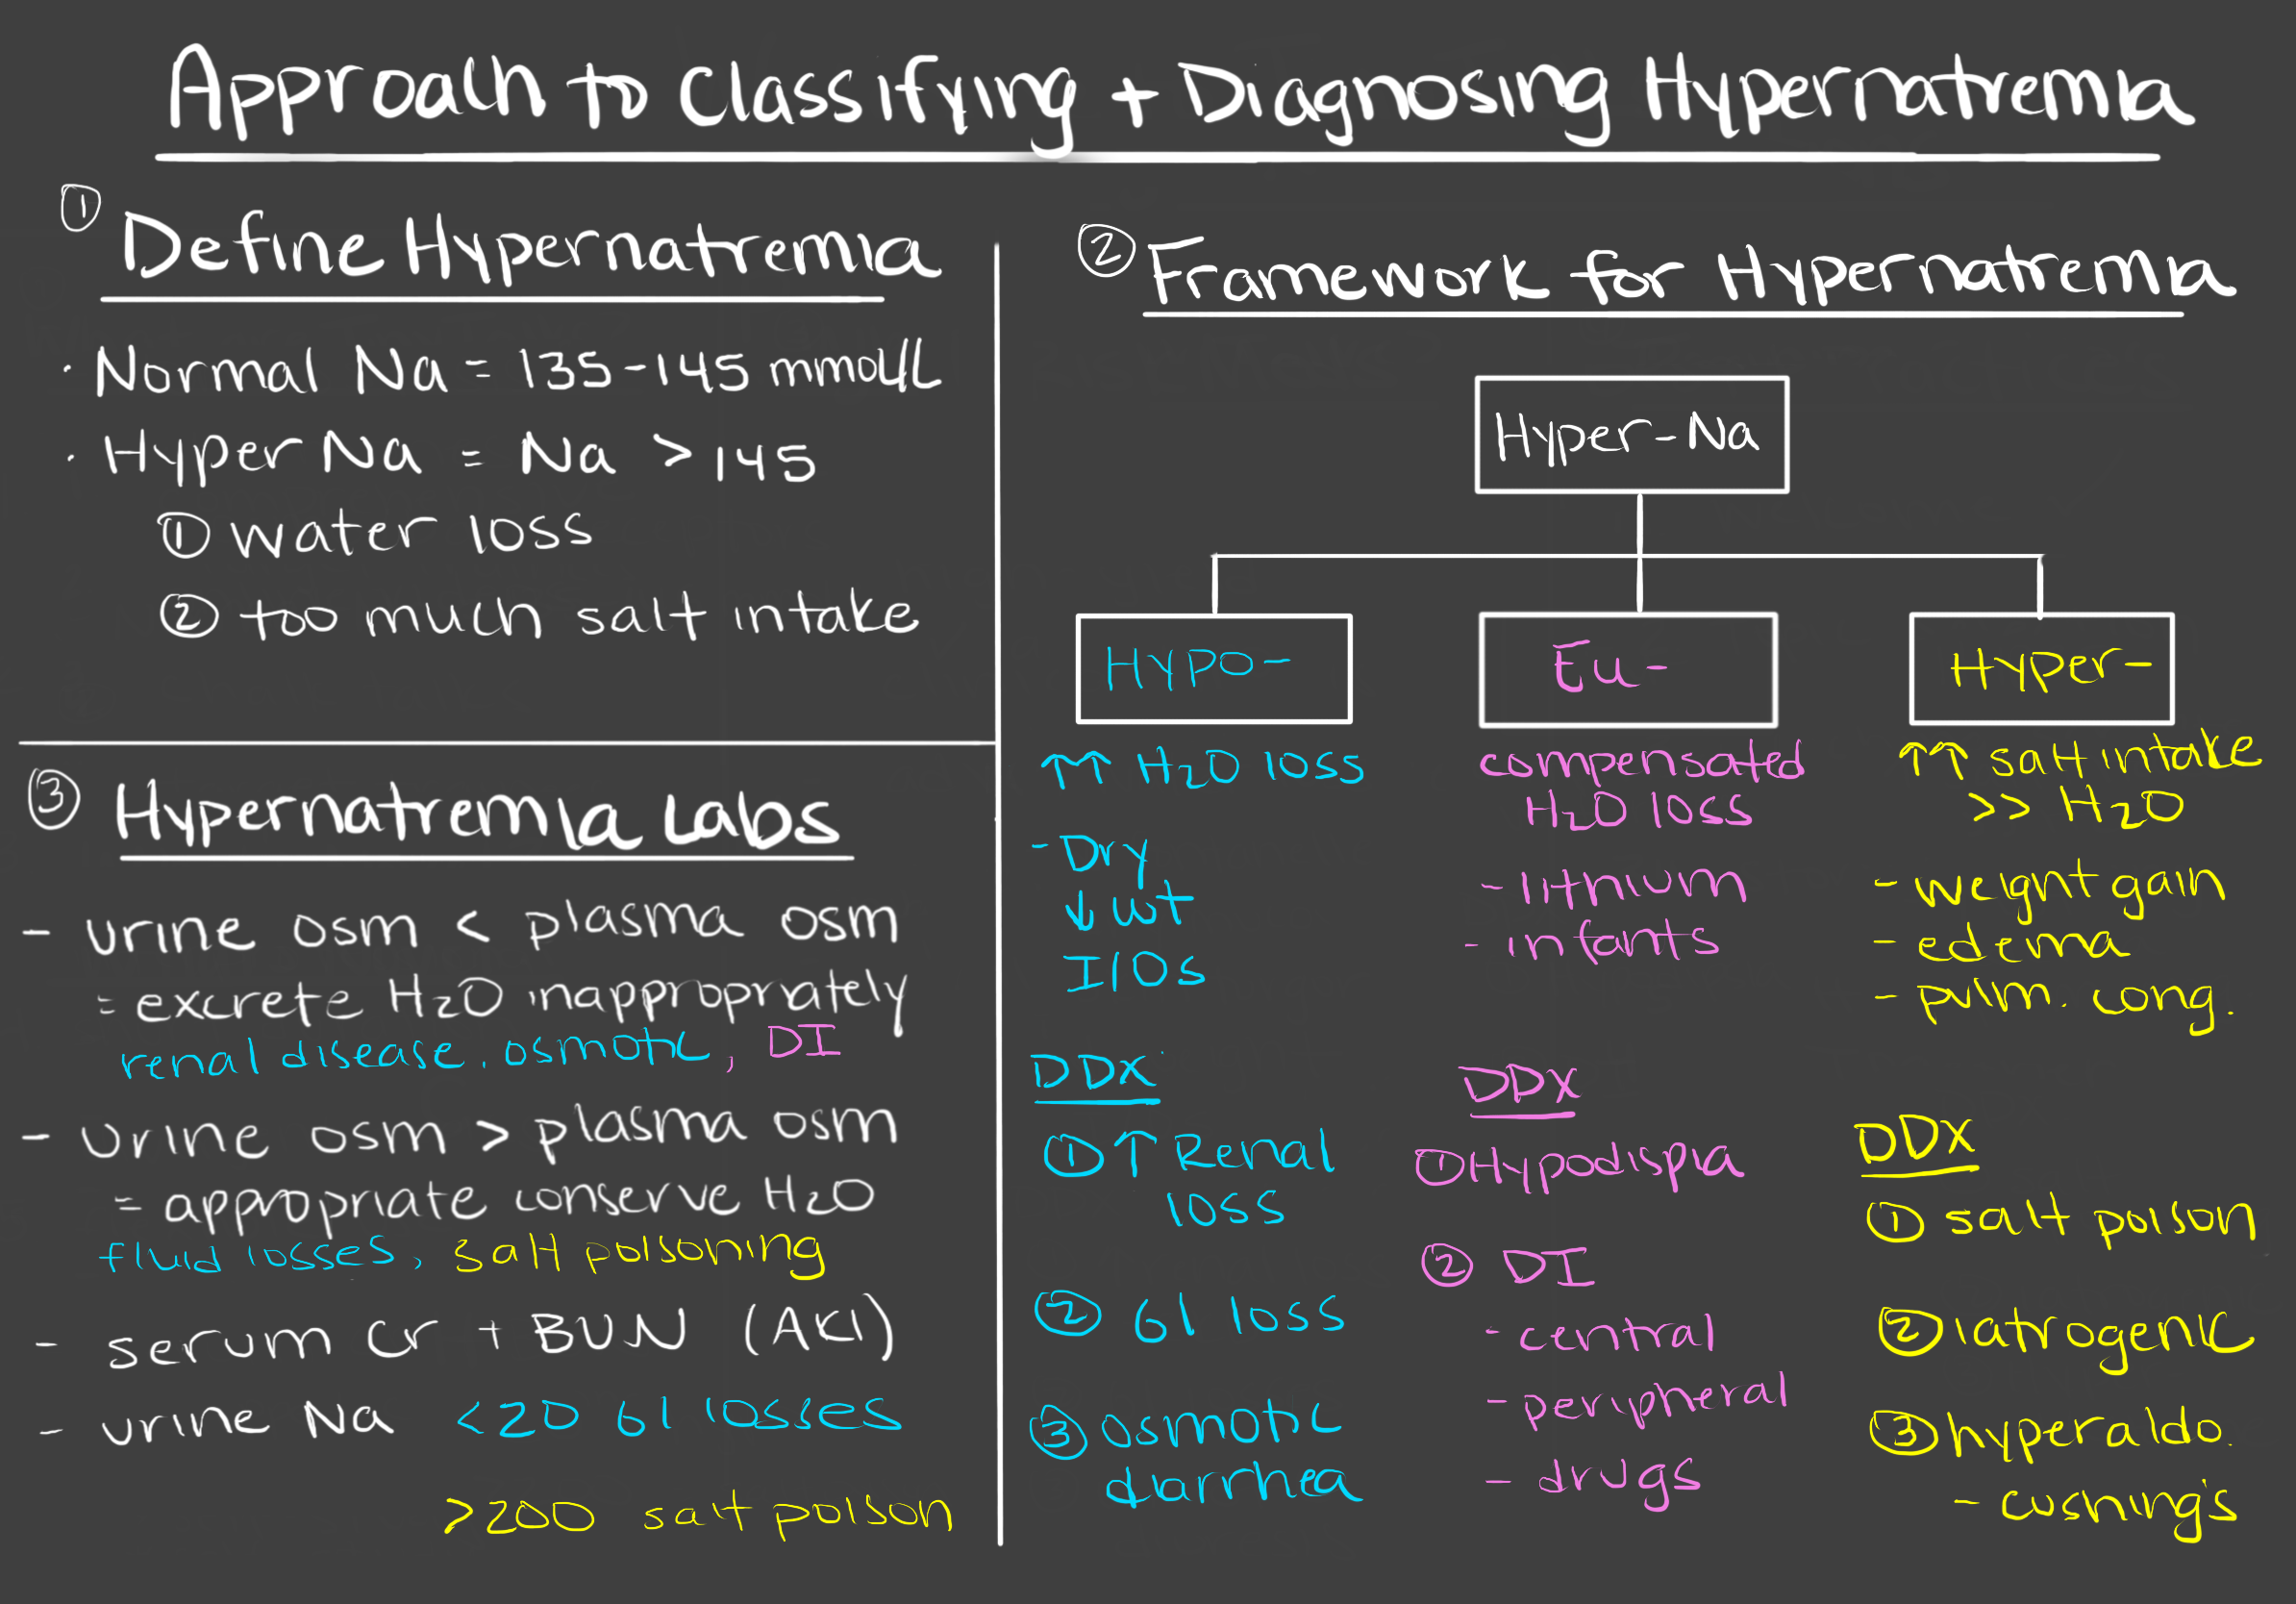 Approach to Classifying + Diagnosing Hypernatremia
① Define Hypernatremia
· Normal Na = 135-145 mmol/L
· Hyper Na = Na > 145
① water loss
② too much salt intake
② Framework for Hypernatremia
Hyper-Na
Hypo-
↑↑ H2O loss
- Dry
↓ wt
I/Os
DDX
① ↑ Renal
loss
② GI loss
③ Osmotic
diarrhea
Eu-
compensated
H2O loss
- lithium
- infants
DDX
① Hypodispia
② DI
- central
- peripheral
- drugs
Hyper-
↑↑ salt intake
>> H2O
- weight gain
- edema
- pulm. cong.
DDX
① salt poison
② iatrogenic
③ hyperaldo.
- cushing's
③ Hypernatremia Labs
- urine osm < plasma osm
= excrete H2O inappropriately
renal disease, osmotic, DI
- urine osm > plasma osm
= appropriate conserve H2O
fluid losses, salt poisoning
- serum Cr + BUN (AKI)
- urine Na <20 GI losses
>200 salt poison